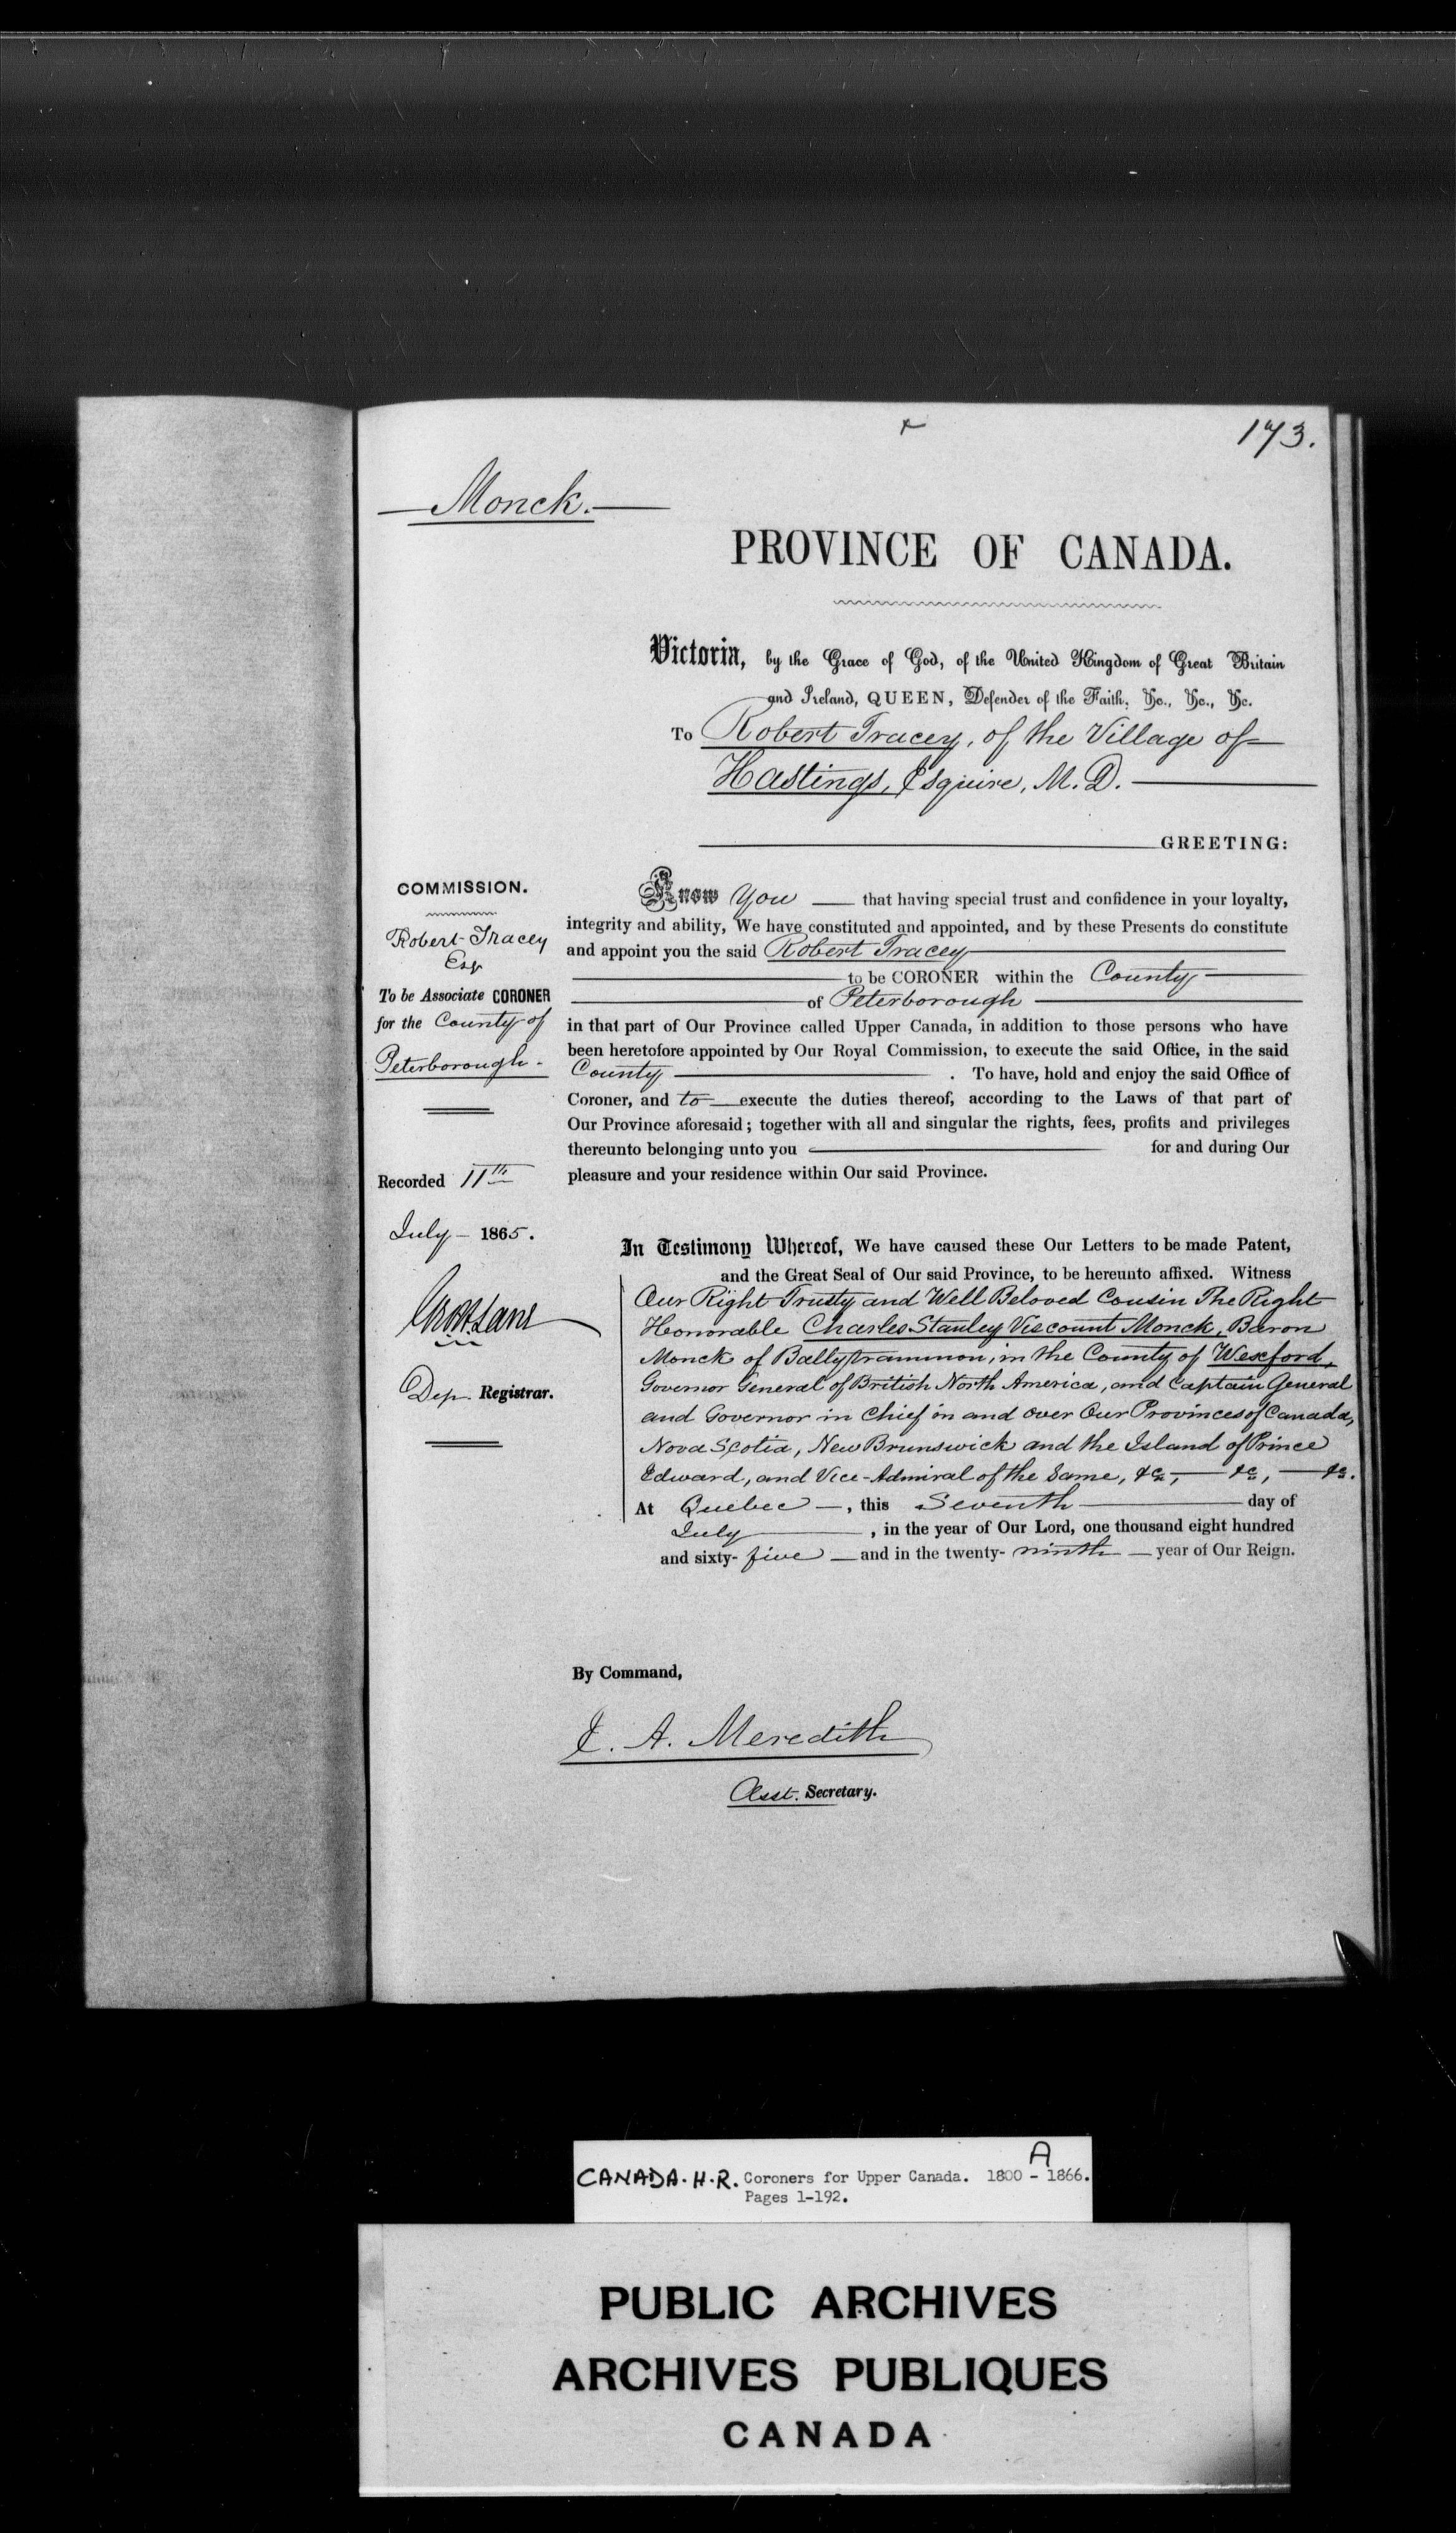 173.
Monck.
PROVINCE OF CANADA.
Victoria, by the Grace of God, of the United Kingdom of Great Britain
and Ireland, QUEEN, Defender of the Faith, &c., &c., &c.
To Robert Tracey, of the Village of
Hastings, Esquire, M. D.
GREETING:
COMMISSION.
Robert Tracey
Esqr
To be Associate CORONER
for the County of
Peterborough.
Recorded 11th
July 1865.
Dep. Registrar.
Know You that having special trust and confidence in your loyalty,
integrity and ability, We have constituted and appointed, and by these Presents do constitute
and appoint you the said Robert Tracey
to be CORONER within the County
of Peterborough
in that part of Our Province called Upper Canada, in addition to those persons who have
been heretofore appointed by Our Royal Commission, to execute the said Office, in the said
County . To have, hold and enjoy the said Office of
Coroner, and to execute the duties thereof, according to the Laws of that part of
Our Province aforesaid; together with all and singular the rights, fees, profits and privileges
thereunto belonging unto you for and during Our
pleasure and your residence within Our said Province.
In Testimony Whereof, We have caused these Our Letters to be made Patent,
and the Great Seal of Our said Province, to be hereunto affixed. Witness
Our Right Trusty and Well Beloved Cousin The Right
Honorable Charles Stanley Viscount Monck, Baron
Monck of Ballytrammon, in the County of Wexford,
Governor General of British North America, and Captain General
and Governor in Chief in and over Our Provinces of Canada,
Nova Scotia, New Brunswick and the Island of Prince
Edward, and Vice-Admiral of the Same, &c, &c, &c.
At Quebec, this Seventh day of
July, in the year of Our Lord, one thousand eight hundred
and sixty-five and in the twenty-ninth year of Our Reign.
By Command,
E. A. Meredith
Asst. Secretary.
A
CANADA. H.R. Coroners for Upper Canada. 1800 - 1866.
Pages 1-192.
PUBLIC ARCHIVES
ARCHIVES PUBLIQUES
CANADA